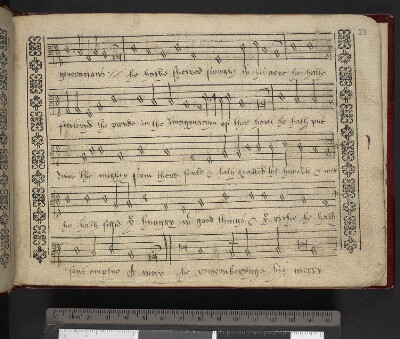 23
generations he hathe shewed strength in his arme he hathe
scatered the proude in the Imagination of their hartes he hath put
downe the mighty from theire seate & hath exalted the humble & meke
he hath filled ye hungry wt good things & ye riche he hath
sent emptye away he remembering his mercy